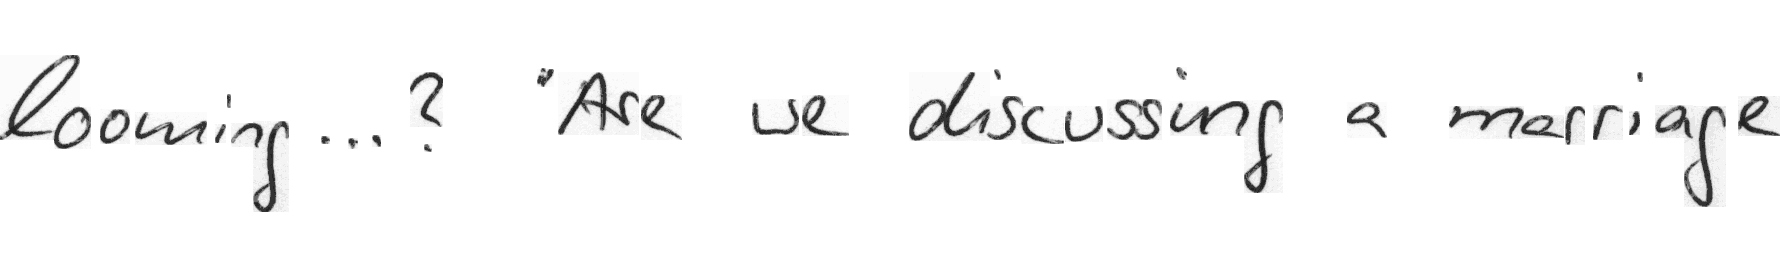 looming...? "Are we discussing a marriage